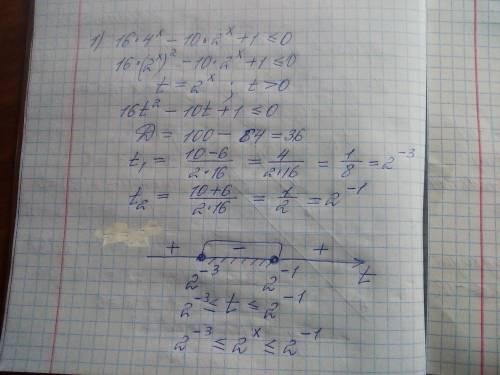 1) 16·4^x − 10·2^x + 1 ≤ 0
16·(2^x)^2 − 10·2^x + 1 ≤ 0
t = 2^x ; t > 0
16t^2 − 10t + 1 ≤ 0
D = 100 − 64 = 36
t_1 = (10−6)/(2·16) = 4/(2·16) = 1/8 = 2^-3
t_2 = (10+6)/(2·16) = 1/2 = 2^-1
+ − +
2^-3 2^-1 t
2^-3 ≤ t ≤ 2^-1
2^-3 ≤ 2^x ≤ 2^-1